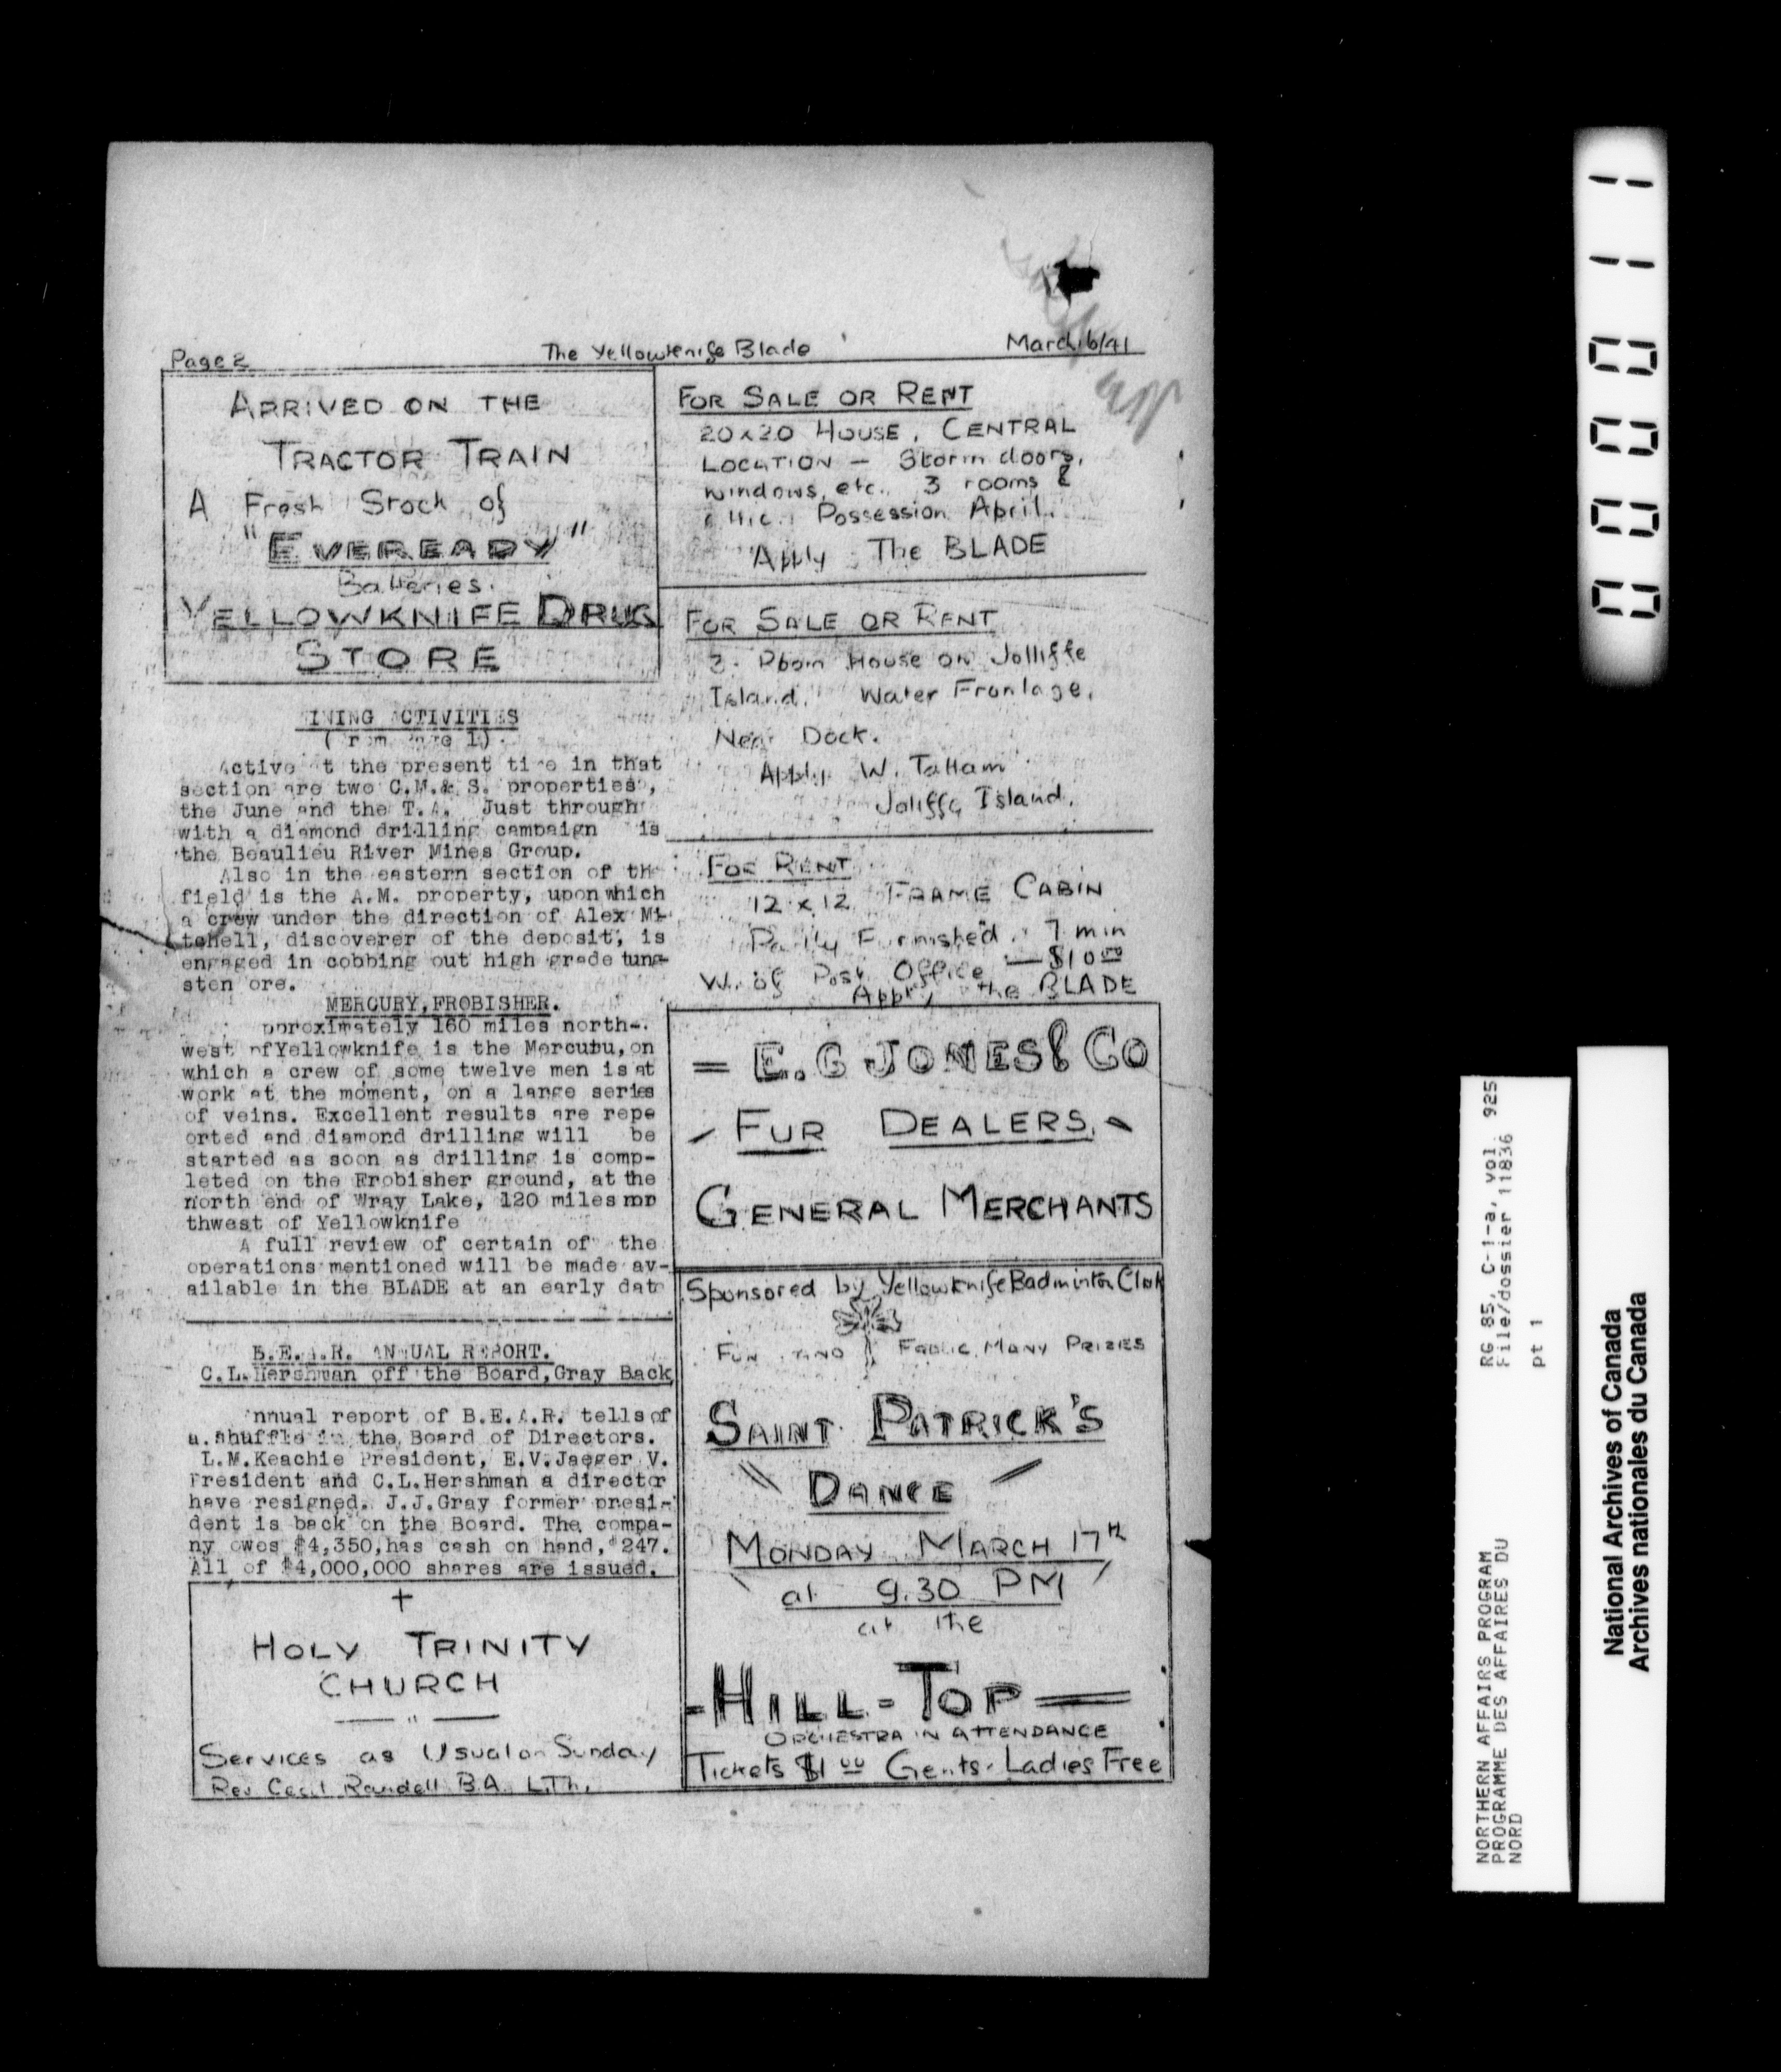 Page 2
The Yellowknife Blade
March 6/41
ARRIVED ON THE
TRACTOR TRAIN
A Fresh Stock of
"EVEREADY"
Batteries.
YELLOWKNIFE DRUG
STORE
INING ACTIVITIES
Active t the present ti e in that
section are two C.M.& S. properties,
the June and the T.A. Just through
with a diamond drilling campaign is
the Beaulieu River Mines Group.
Also in the eastern section of th
field is the A.M. property, upon which
a crew under the direction of Alex Mi-
tchell, discoverer of the deposit, is
engaged in cobbing out high grade tung-
sten ore.
MERCURY, FROBISHER.
pproximately 160 miles north-
west of Yellowknife is the Mercury, on
which a crew of some twelve men is at
work at the moment, on a large series
of veins. Excellent results are repe
orted and diamond drilling will be
started as soon as drilling is comp-
leted on the Frobisher ground, at the
north end of Wray Lake, 120 miles nor
thwest of Yellowknife
A full review of certain of the
operations mentioned will be made av-
ailable in the BLADE at an early date
B.E.A.R. ANNUAL REPORT.
C.L.Hershman off the Board, Gray Back
Annual report of B.E.A.R. tells of
a shuffle in the Board of Directors.
L.M.Keachie President, E.V.Jaeger V.
President and C.L.Hershman a director
have resigned. J.J.Gray former presi-
dent is back on the Board. The compa-
ny owes $4,350, has cash on hand, $247.
All of $4,000,000 shares are issued.
HOLY TRINITY
CHURCH
Services as Usual on Sunday
Rev Cecil Randell B.A. L.Th.
FOR SALE OR RENT
20x20 HOUSE, CENTRAL
LOCATION — Storm doors,
windows, etc. 3 rooms &
attic. Possession April.
Apply The BLADE
FOR SALE OR RENT
3 Room House on Jolliffe
Island. Water Frontage.
Near Dock.
Apply W. Tatham
Joliffe Island.
FOR RENT
12 x 12 FRAME CABIN
Partly Furnished. 7 min
W. of Post Office — $10 00
Apply the BLADE
= E.G JONES & CO
- FUR DEALERS. -
GENERAL MERCHANTS
Sponsored by Yellowknife Badminton Club
FUN AND FROLIC, MANY PRIZES
SAINT PATRICK'S
DANCE
MONDAY MARCH 17th
at 9.30 PM
at the
-HILL-TOP—
ORCHESTRA IN ATTENDANCE
Tickets $1 00 Gents. Ladies Free
000011
RG 85, C-1-a, vol. 925
File/dossier 11836
pt 1
NORTHERN AFFAIRS PROGRAM
PROGRAMME DES AFFAIRES DU
NORD
National Archives of Canada
Archives nationales du Canada